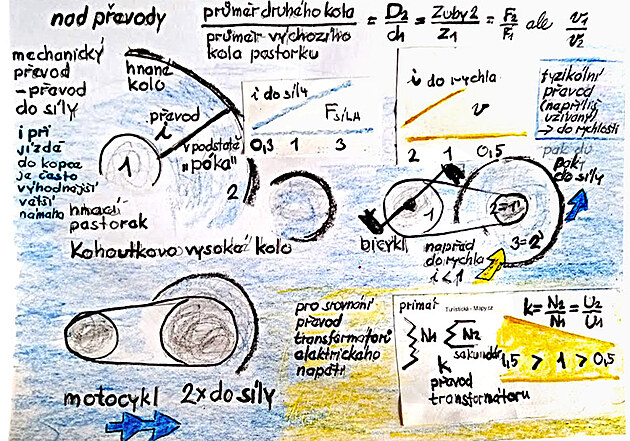 nad převody
průměr druhého kola
průměr výchozího
kola pastorku
= D2/d1 = Zuby2/Z1 = F2/F1 ale v1/v2
mechanický
převod
– převod
do síly
i při
jízdě
do kopce
je často
výhodnější
větší
námaha
hnané
kolo
převod
i
v podstatě
"páka"
1
2
hnací
pastorek
Kohoutkovo vysoké kolo
i do síly
FSÍLA
0,3 1 3
i do rychla
v
2 1 0,5
fyzikální
převod
(napříliš
užívaný)
→ do rychlosti
pak du
páky
do síly
1
2=1'
3=2'
bicykl
napřed
do rychla
i<1
motocykl 2x do síly
pro srovnání
převod
transformátorů
elektrického
napětí
primár
Turistická - Mapy.cz
N1
N2
sekundár
k
převod
transformátoru
k = N2/N1 = U2/U1
1,5 > 1 > 0,5